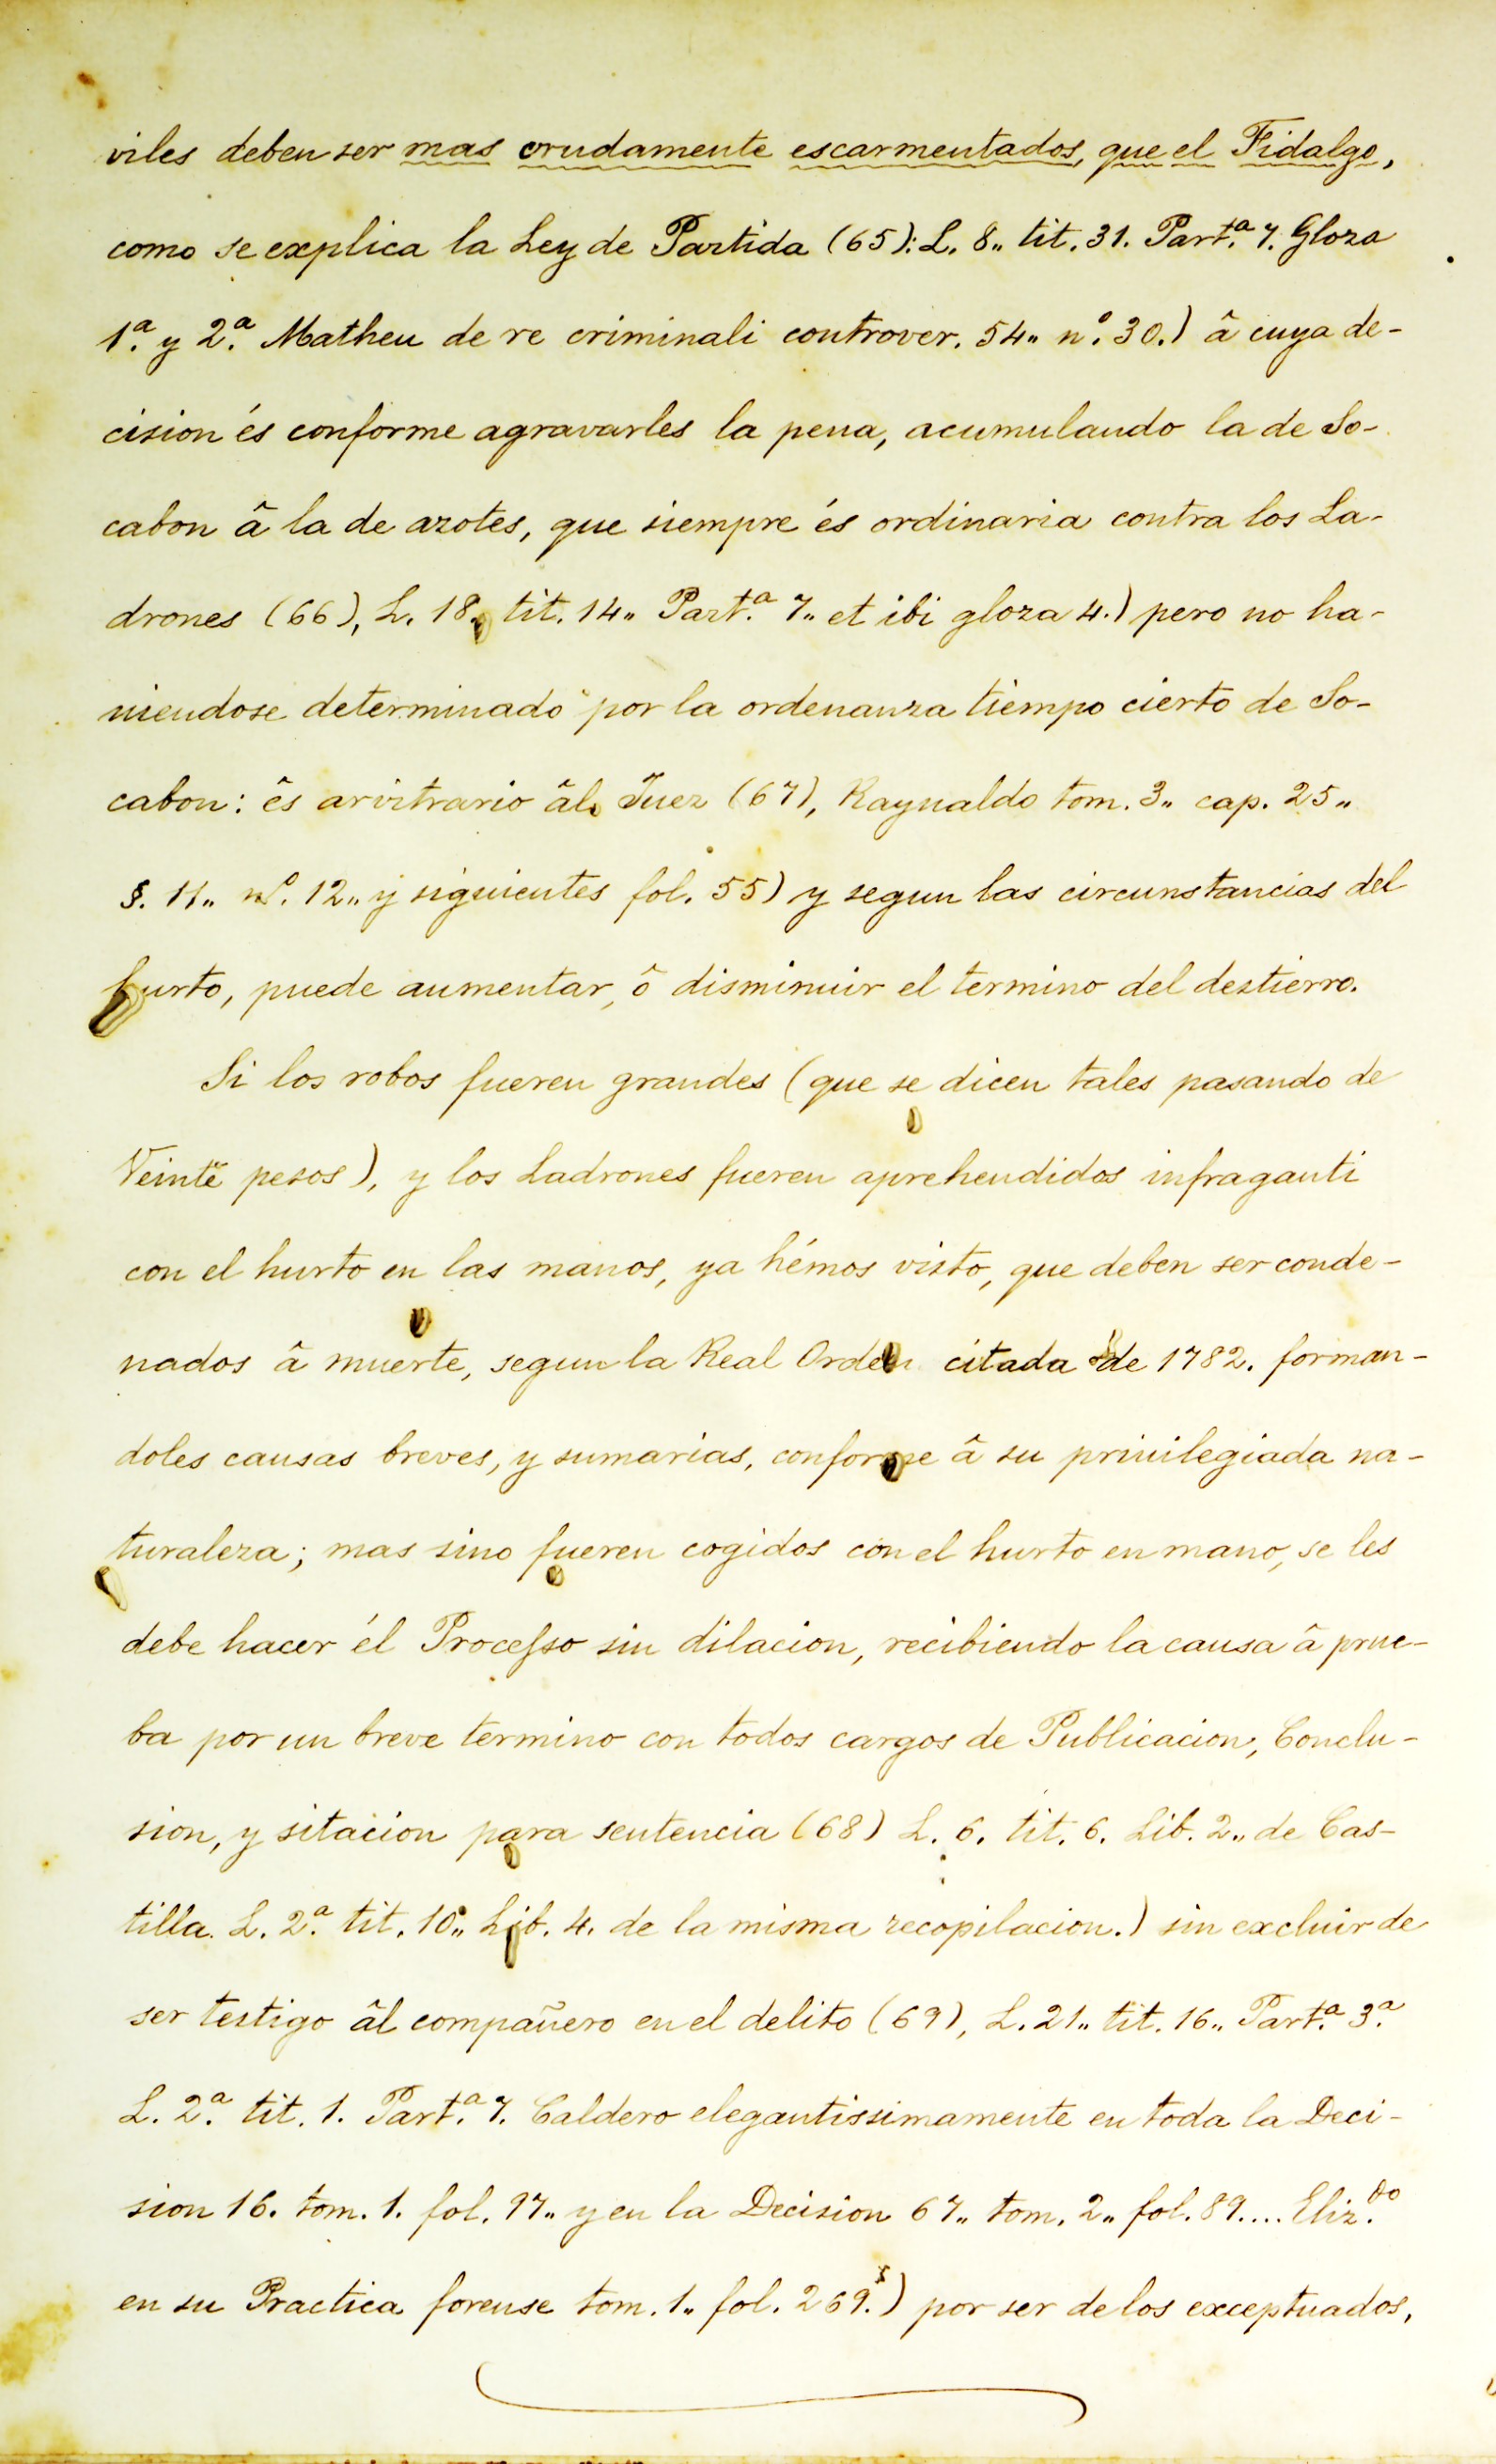 viles deben ser mas crudamente escarmentados, que el Fidalgo,
como se explica la Ley de Partida (65): L. 8,, tit. 31. Part.ª 7. Gloza
1.ª y 2.ª Matheu de re criminali controver. 54,, n.º 30.) â cuya de-
cision és conforme agravarles la pena, acumulando la de So-
cabon â la de azotes, que siempre és ordinaria contra los La-
drones (66), L. 18,, tit. 14,, Part.ª 7,, et ibi gloza 4.) pero no ha-
viendose determinado por la ordenanza tiempo cierto de So-
cabon: ês arvitrario âl Juez (67), Raynaldo tom. 3,, cap. 25,,
§. 11,, n.º 12,, y siguientes fol. 55) y segun las circunstancias del
hurto, puede aumentar, ô disminuir el termino del destierro.
Si los robos fueren grandes (que se dicen tales pasando de
Veinte pesos), y los Ladrones fueren aprehendidos infraganti
con el hurto en las manos, ya hémos visto, que deben ser conde-
nados â muerte, segun la Real Orden citada de 1782. forman-
doles causas breves, y sumarias, conforme â su privilegiada na-
turaleza; mas sino fueren cogidos con el hurto en mano, se les
debe hacer él Proceſso sin dilacion, recibiendo la causa â prue-
ba por un breve termino con todos cargos de Publicacion, Conclu-
sion, y sitacion para sentencia (68) L. 6. tit. 6. Lib. 2,, de Cas-
tilla. L. 2.ª tit. 10,, Lib. 4. de la misma recopilacion.) sin excluir de
ser testigo âl compañero en el delito (69), L. 21,, tit. 16,, Part.ª 3.ª
L. 2.ª tit. 1. Part.ª 7. Caldero elegantissimamente en toda la Deci-
sion 16. tom. 1. fol. 97,, y en la Decision 67,, tom. 2,, fol. 89.... Eliz.do
en su Practica forense tom. 1,, fol. 269.) por ser de los exceptuados,